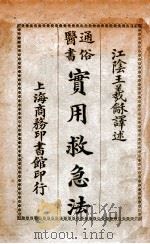 江陰王羲龢譯述
通俗
醫書
實用救急法
上海商務印書館印行